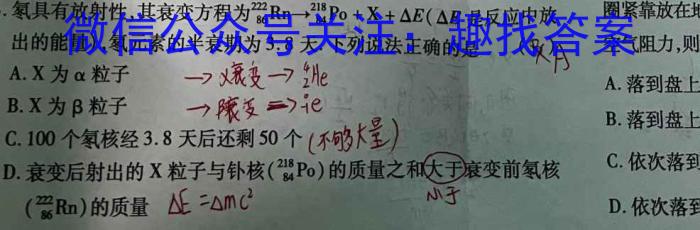 .氡具有放射性,其衰变方程为²²²₈₆Rn→²¹⁸₈₄Po+X+ΔE(ΔE是反应中放
出的能量),氡元素的半衰期为3.8天,下列说法正确的是
微信公众号关注：趣找答案
A.X为α粒子 → α衰变 → ⁴₂He
B.X为β粒子
C.100个氡核经3.8天后还剩50个 (不够大量)
D.衰变后射出的X粒子与钋核(²¹⁸₈₄Po)的质量之和大于衰变前氡核
小于
(²²²₈₆Rn)的质量 ΔE=Δmc²
圈紧靠放在
气阻力,则
A.落到盘上
B.落到盘上
C.依次落到
D.依次落到